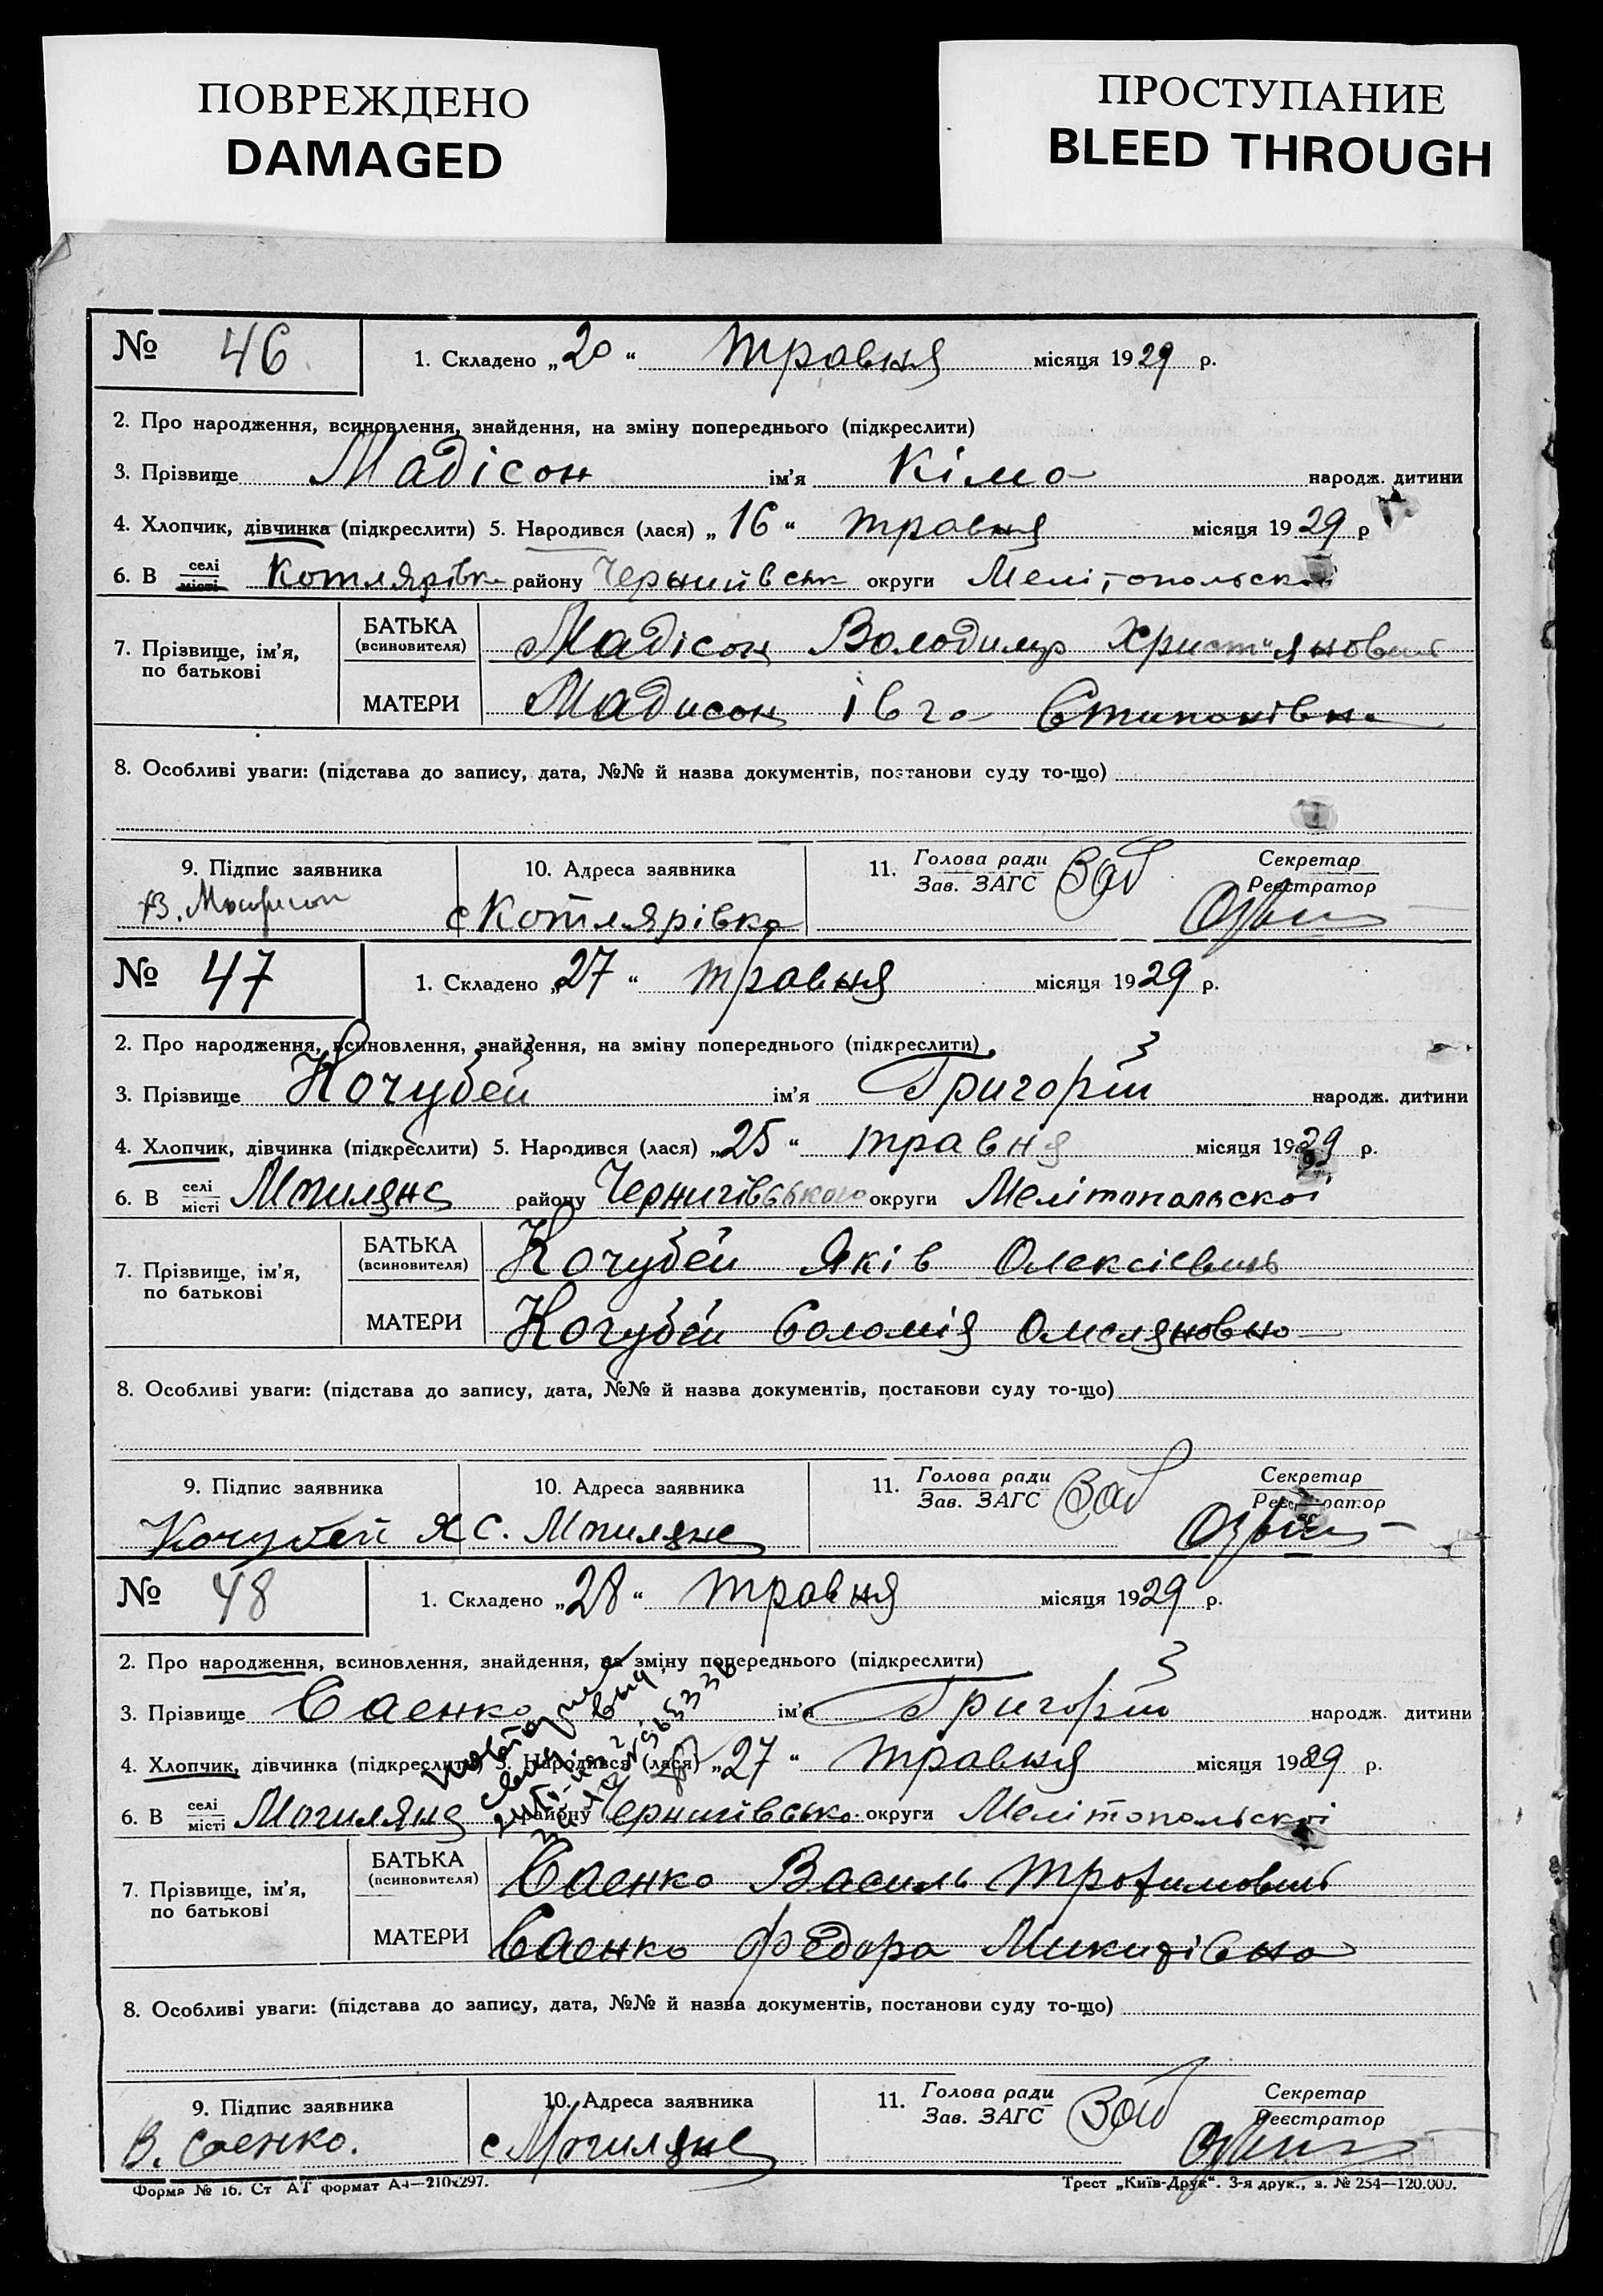 ПОВРЕЖДЕНО
DAMAGED
ПРОСТУПАНИЕ
BLEED THROUGH
№ 46
1. Складено „20“ травня місяця 1929 р.
2. Про народження, всиновлення, знайдення, на зміну попереднього (підкреслити)
3. Прізвище Мадісон ім'я Кіма народж. дитини
4. Хлопчик, дівчинка (підкреслити) 5. Народився (лася) „16“ травня місяця 1929 р
6. В селі місті Котлярівка району округи Мелітопольскої
7. Прізвище, ім'я, по батькові
БАТЬКА (всиновителя) Мадісон Володимир Християнович
МАТЕРИ Мадисон Івга
8. Особливі уваги: (підстава до запису, дата, №№ й назва документів, постанови суду то-що)
9. Підпис заявника 10. Адреса заявника 11. Голова ради Зав. ЗАГС Секретар Реєстратор
с Котлярівка
№ 47
1. Складено „27“ травня місяця 1929 р.
2. Про народження, всиновлення, знайдення, на зміну попереднього (підкреслити)
3. Прізвище Кочубей ім'я Григорій народж. дитини
4. Хлопчик, дівчинка (підкреслити) 5. Народився (лася) „25“ травня місяця 1929 р.
6. В селі місті Могиляне району Чернигівського округи Мелітопольскої
7. Прізвище, ім'я, по батькові
БАТЬКА (всиновителя) Кочубей Яків Олексієвич
МАТЕРИ Кочубей Соломія Омеляновна
8. Особливі уваги: (підстава до запису, дата, №№ й назва документів, постанови суду то-що)
9. Підпис заявника 10. Адреса заявника 11. Голова ради Зав. ЗАГС Секретар Реєстратор
Кочубей Я с. Могиляне
№ 48
1. Складено „28“ травня місяця 1929 р.
2. Про народження, всиновлення, знайдення, на зміну попереднього (підкреслити)
3. Прізвище Саенко ім'я Григорій народж. дитини
4. Хлопчик, дівчинка (підкреслити) 5. Народився (лася) „27“ травня місяця 1929 р.
6. В селі місті Могиляне району округи Мелітопольскої
7. Прізвище, ім'я, по батькові
БАТЬКА (всиновителя) Саенко Василь Трофимович
МАТЕРИ Саенко Федора Микитівна
8. Особливі уваги: (підстава до запису, дата, №№ й назва документів, постанови суду то-що)
9. Підпис заявника 10. Адреса заявника 11. Голова ради Зав. ЗАГС Секретар Реєстратор
В. Саенко. с Могиляне
Форма № 16. Ст АТ формат А4—210х297.
Трест „Київ-Друк“. 3-я друк., з. № 254—120.000.